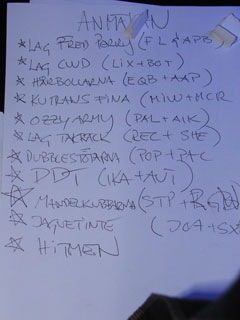 ANMÄLAN
* LAG FRED PERRY (FL & APB
* LAG CWD (LIX + BOT)
* HÅRBOLLARNA (EQB + AAP)
* KUTRANS FINA (MIW + MCR
* OZZY ARMY (PAL + AIK)
* LAG TAKPACK (REC + SHE)
* DUBBLESTÖTARNA (POP +
* DDT (IKA + AUT)
* MANDELKUBBARNA (STP +
* JAGVETINTE (JCA + SX
* HITMEN